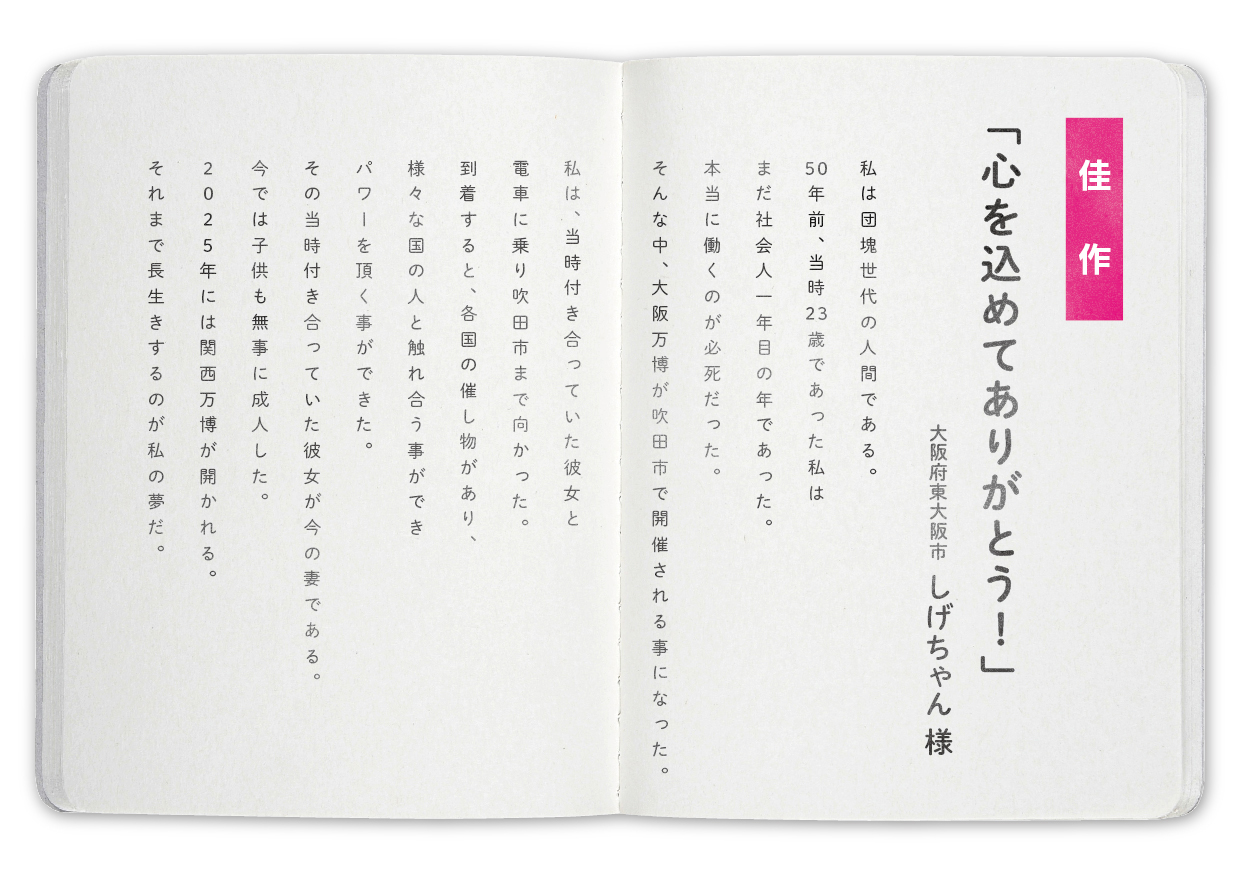 佳作
「心を込めてありがとう！」
大阪府東大阪市 しげちゃん 様
私は団塊世代の人間である。
50年前、当時23歳であった私は
まだ社会人一年目の年であった。
本当に働くのが必死だった。
そんな中、大阪万博が吹田市で開催される事になった。
私は、当時付き合っていた彼女と
電車に乗り吹田市まで向かった。
到着すると、各国の催し物があり、
様々な国の人と触れ合う事ができ
パワーを頂く事ができた。
その当時付き合っていた彼女が今の妻である。
今では子供も無事に成人した。
2025年には関西万博が開かれる。
それまで長生きするのが私の夢だ。